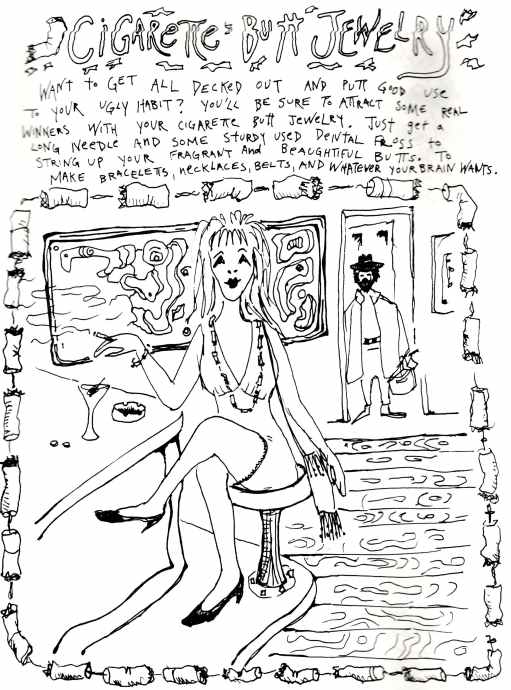 CIGARETTE BUTT JEWELRY
WANT to GET ALL DECKED OUT AND PUTT GOOD USE
TO YOUR UGLY HABIT? YOU'LL BE SURE TO ATTRACT SOME REAL
WINNERS WITH YOUR CIGARETTE BUTT JEWELRY. JUST get a
LONG NEEDLE AND SOME STURDY USED DENTAL FLOSS to
STRING UP YOUR FRAGRANT AND BEAUGHTIFUL BUTTS. TO
MAKE BRACELETS, NECKLACES, BELTS, AND WHATEVER YOUR BRAIN WANTS.